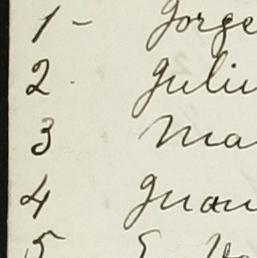 1 - Jorge
2. Juliu
3 Ma
4 Juan
5